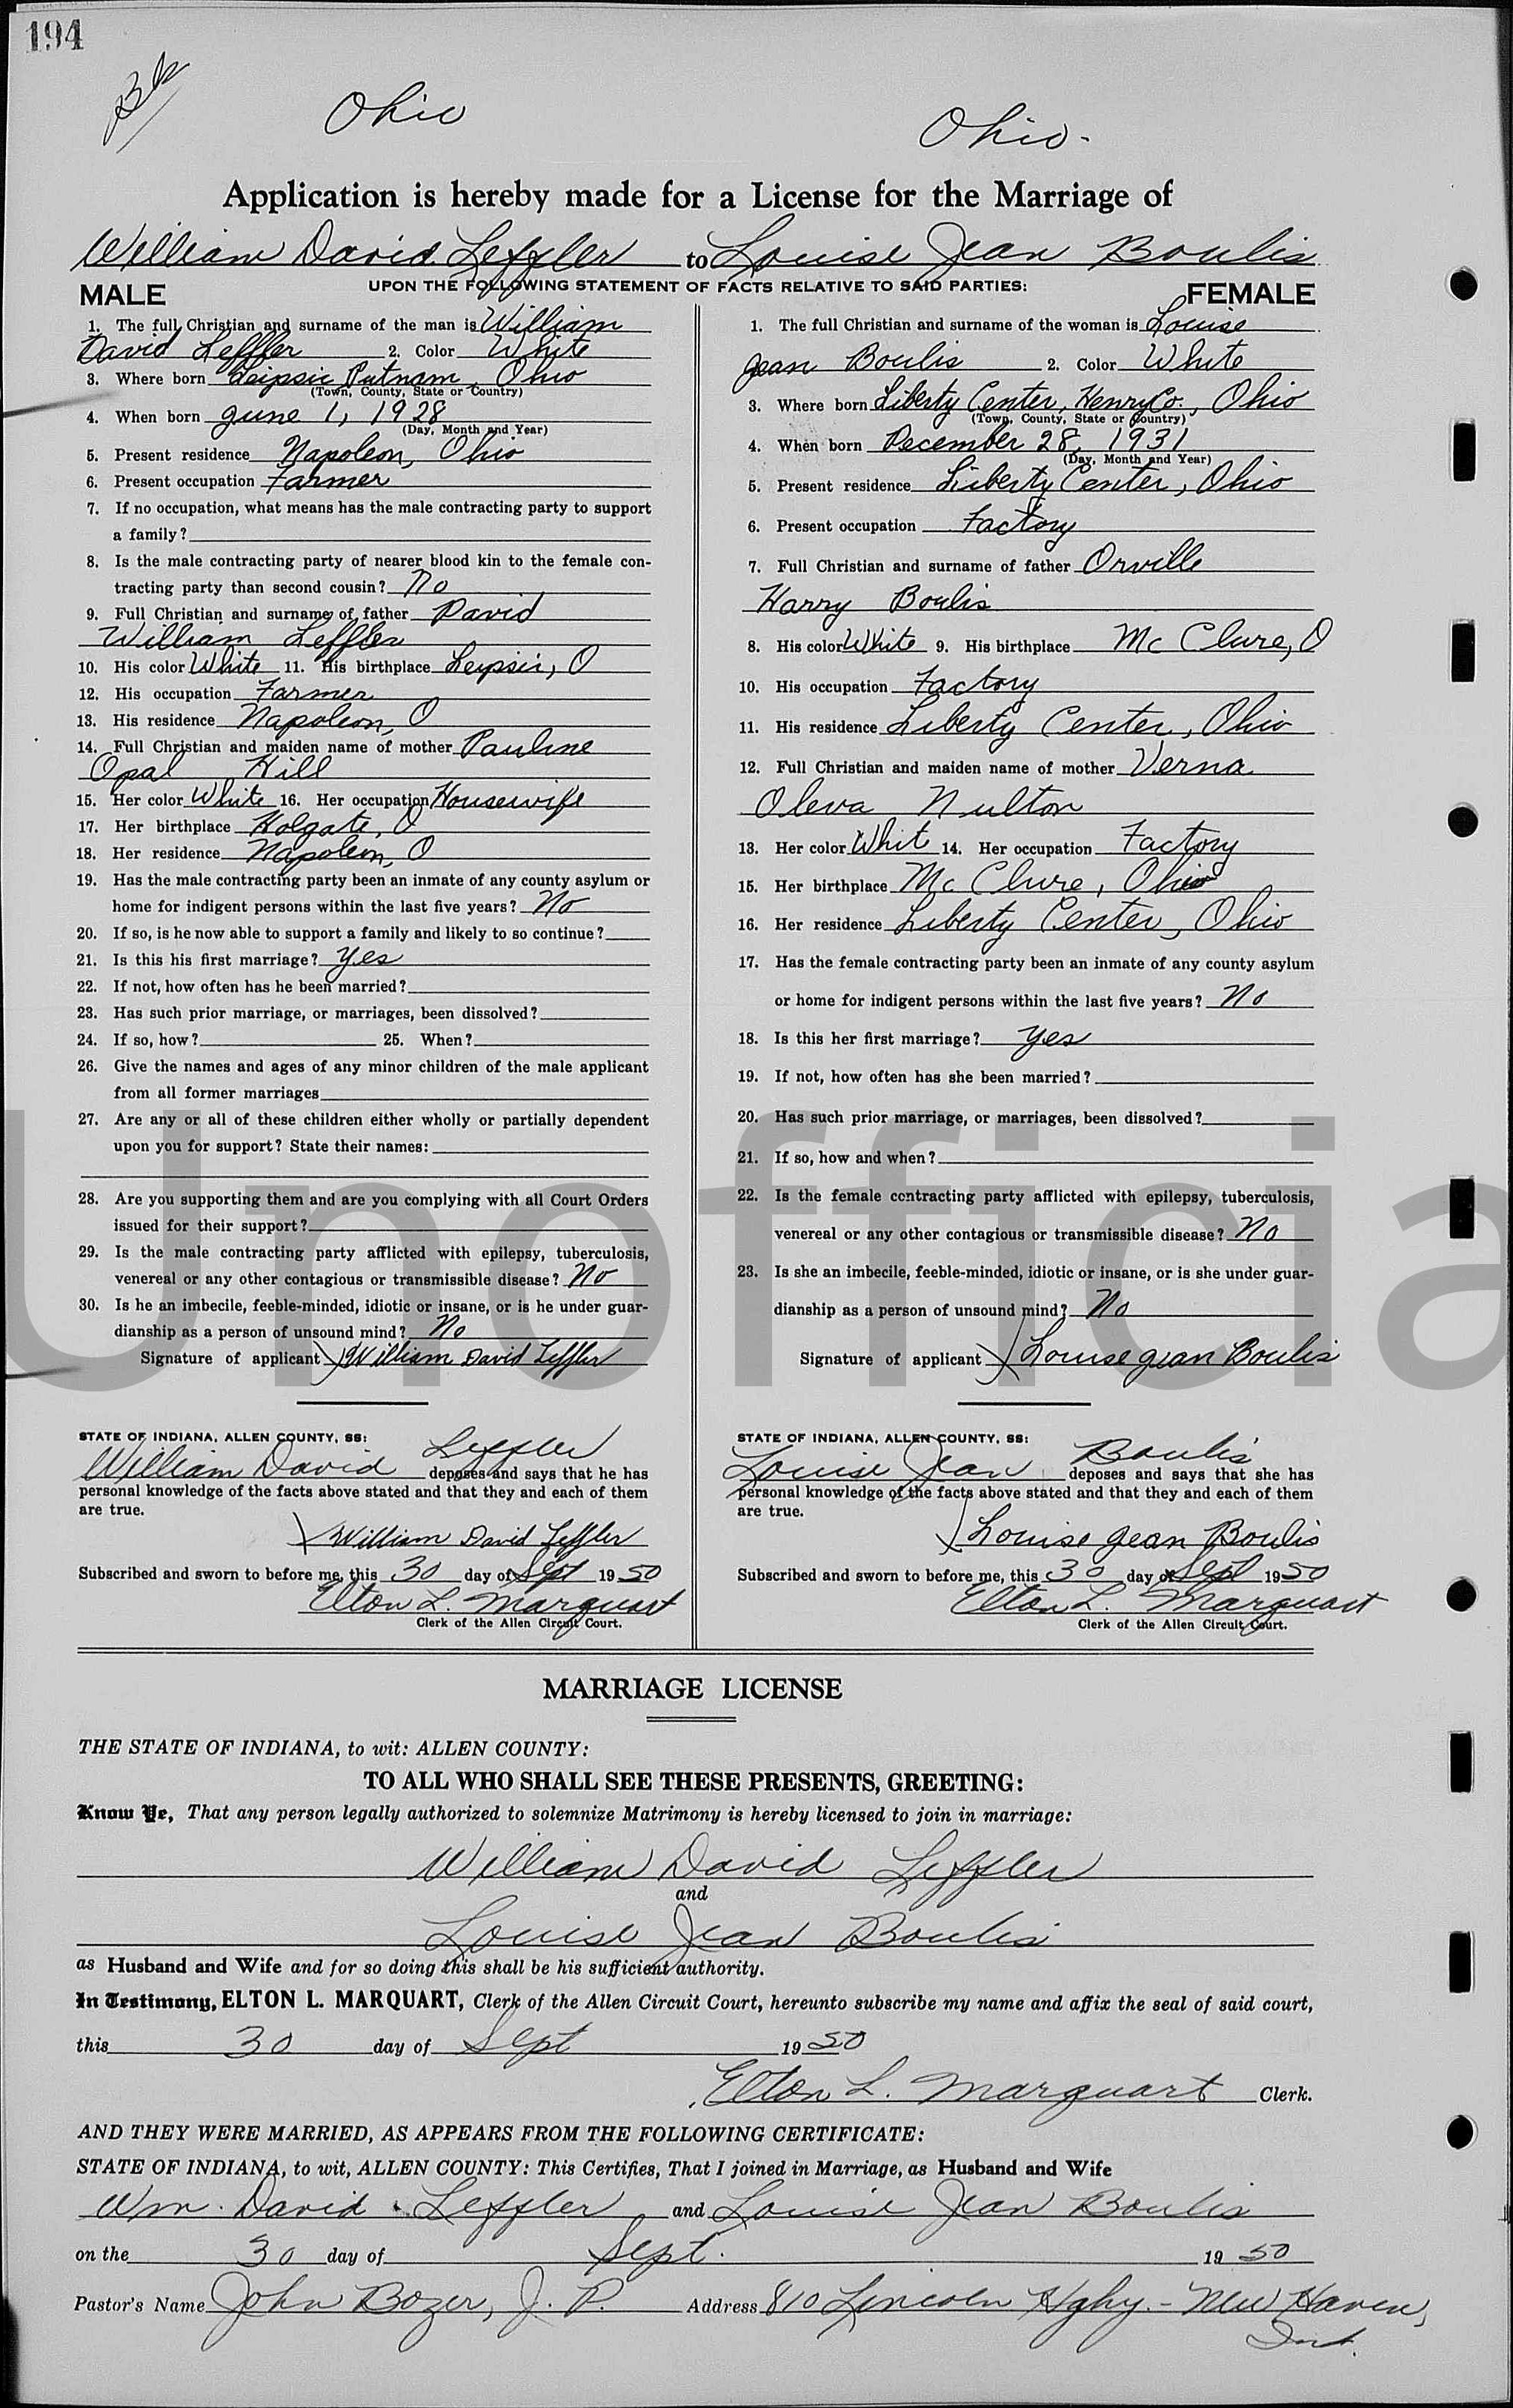 194
Ohio
Ohio.
Application is hereby made for a License for the Marriage of
William David Leffler to Louise Jean Boulis
UPON THE FOLLOWING STATEMENT OF FACTS RELATIVE TO SAID PARTIES:
MALE
1. The full Christian and surname of the man is William
David Leffler 2. Color White
3. Where born Leipsic Putnam, Ohio
(Town, County, State or Country)
4. When born June 1, 1928
(Day, Month and Year)
5. Present residence Napoleon, Ohio
6. Present occupation Farmer
7. If no occupation, what means has the male contracting party to support
a family?
8. Is the male contracting party of nearer blood kin to the female con-
tracting party than second cousin? No
9. Full Christian and surname of father David
William Leffler
10. His color White 11. His birthplace Leipsic, O
12. His occupation Farmer
13. His residence Napoleon, O
14. Full Christian and maiden name of mother Pauline
Opal Hill
15. Her color White 16. Her occupation Housewife
17. Her birthplace Holgate, O
18. Her residence Napoleon, O
19. Has the male contracting party been an inmate of any county asylum or
home for indigent persons within the last five years? No
20. If so, is he now able to support a family and likely to so continue?
21. Is this his first marriage? Yes
22. If not, how often has he been married?
23. Has such prior marriage, or marriages, been dissolved?
24. If so, how? 25. When?
26. Give the names and ages of any minor children of the male applicant
from all former marriages
27. Are any or all of these children either wholly or partially dependent
upon you for support? State their names:
28. Are you supporting them and are you complying with all Court Orders
issued for their support?
29. Is the male contracting party afflicted with epilepsy, tuberculosis,
venereal or any other contagious or transmissible disease? No
30. Is he an imbecile, feeble-minded, idiotic or insane, or is he under guar-
dianship as a person of unsound mind? No
Signature of applicant William David Leffler
STATE OF INDIANA, ALLEN COUNTY, SS:
William David Leffler deposes and says that he has
personal knowledge of the facts above stated and that they and each of them
are true.
William David Leffler
Subscribed and sworn to before me, this 30 day of Sept 1950
Elton L. Marquart
Clerk of the Allen Circuit Court.
FEMALE
1. The full Christian and surname of the woman is Louise
Jean Boulis 2. Color White
3. Where born Liberty Center, Henry Co., Ohio
(Town, County, State or Country)
4. When born December 28, 1931
(Day, Month and Year)
5. Present residence Liberty Center, Ohio
6. Present occupation Factory
7. Full Christian and surname of father Orville
Harry Boulis
8. His color White 9. His birthplace Mc Clure, O
10. His occupation Factory
11. His residence Liberty Center, Ohio
12. Full Christian and maiden name of mother Verna
Oleva Nulton
13. Her color Whit 14. Her occupation Factory
15. Her birthplace Mc Clure, Ohio
16. Her residence Liberty Center, Ohio
17. Has the female contracting party been an inmate of any county asylum
or home for indigent persons within the last five years? No
18. Is this her first marriage? Yes
19. If not, how often has she been married?
20. Has such prior marriage, or marriages, been dissolved?
21. If so, how and when?
22. Is the female contracting party afflicted with epilepsy, tuberculosis,
venereal or any other contagious or transmissible disease? No
23. Is she an imbecile, feeble-minded, idiotic or insane, or is she under guar-
dianship as a person of unsound mind? No
Signature of applicant Louise Jean Boulis
STATE OF INDIANA, ALLEN COUNTY, SS:
Louise Jean Boulis deposes and says that she has
personal knowledge of the facts above stated and that they and each of them
are true.
Louise Jean Boulis
Subscribed and sworn to before me, this 30 day of Sept 1950
Elton L. Marquart
Clerk of the Allen Circuit Court.
Unofficia
MARRIAGE LICENSE
THE STATE OF INDIANA, to wit: ALLEN COUNTY:
TO ALL WHO SHALL SEE THESE PRESENTS, GREETING:
Know Ye, That any person legally authorized to solemnize Matrimony is hereby licensed to join in marriage:
William David Leffler
and
Louise Jean Boulis
as Husband and Wife and for so doing this shall be his sufficient authority.
In Testimony, ELTON L. MARQUART, Clerk of the Allen Circuit Court, hereunto subscribe my name and affix the seal of said court,
this 30 day of Sept 1950
Elton L. Marquart Clerk.
AND THEY WERE MARRIED, AS APPEARS FROM THE FOLLOWING CERTIFICATE:
STATE OF INDIANA, to wit, ALLEN COUNTY: This Certifies, That I joined in Marriage, as Husband and Wife
Wm. David Leffler and Louise Jean Boulis
on the 30 day of Sept. 1950
Pastor's Name John Bozer, J. P. Address 810 Lincoln Hghy. - New Haven,
Ind.